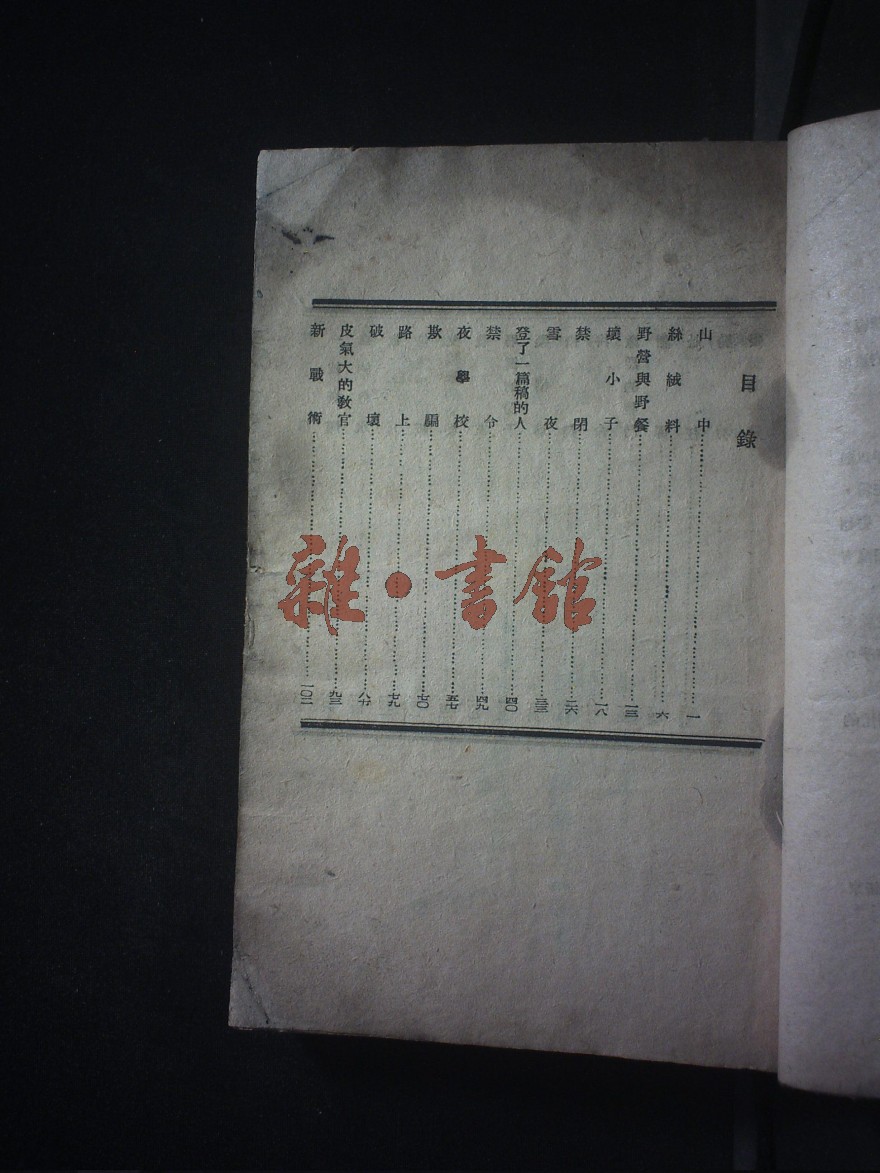 目錄
山中……一
絲絨料……六
野營與野餐……一三
壞小子……一八
禁閉……二六
雪夜……三三
登了一篇稿的人……四〇
禁令……四九
夜學校……五七
欺騙……七〇
路上……七九
破壞……八六
皮氣大的教官……九三
新戰術……一〇二
雜·書館